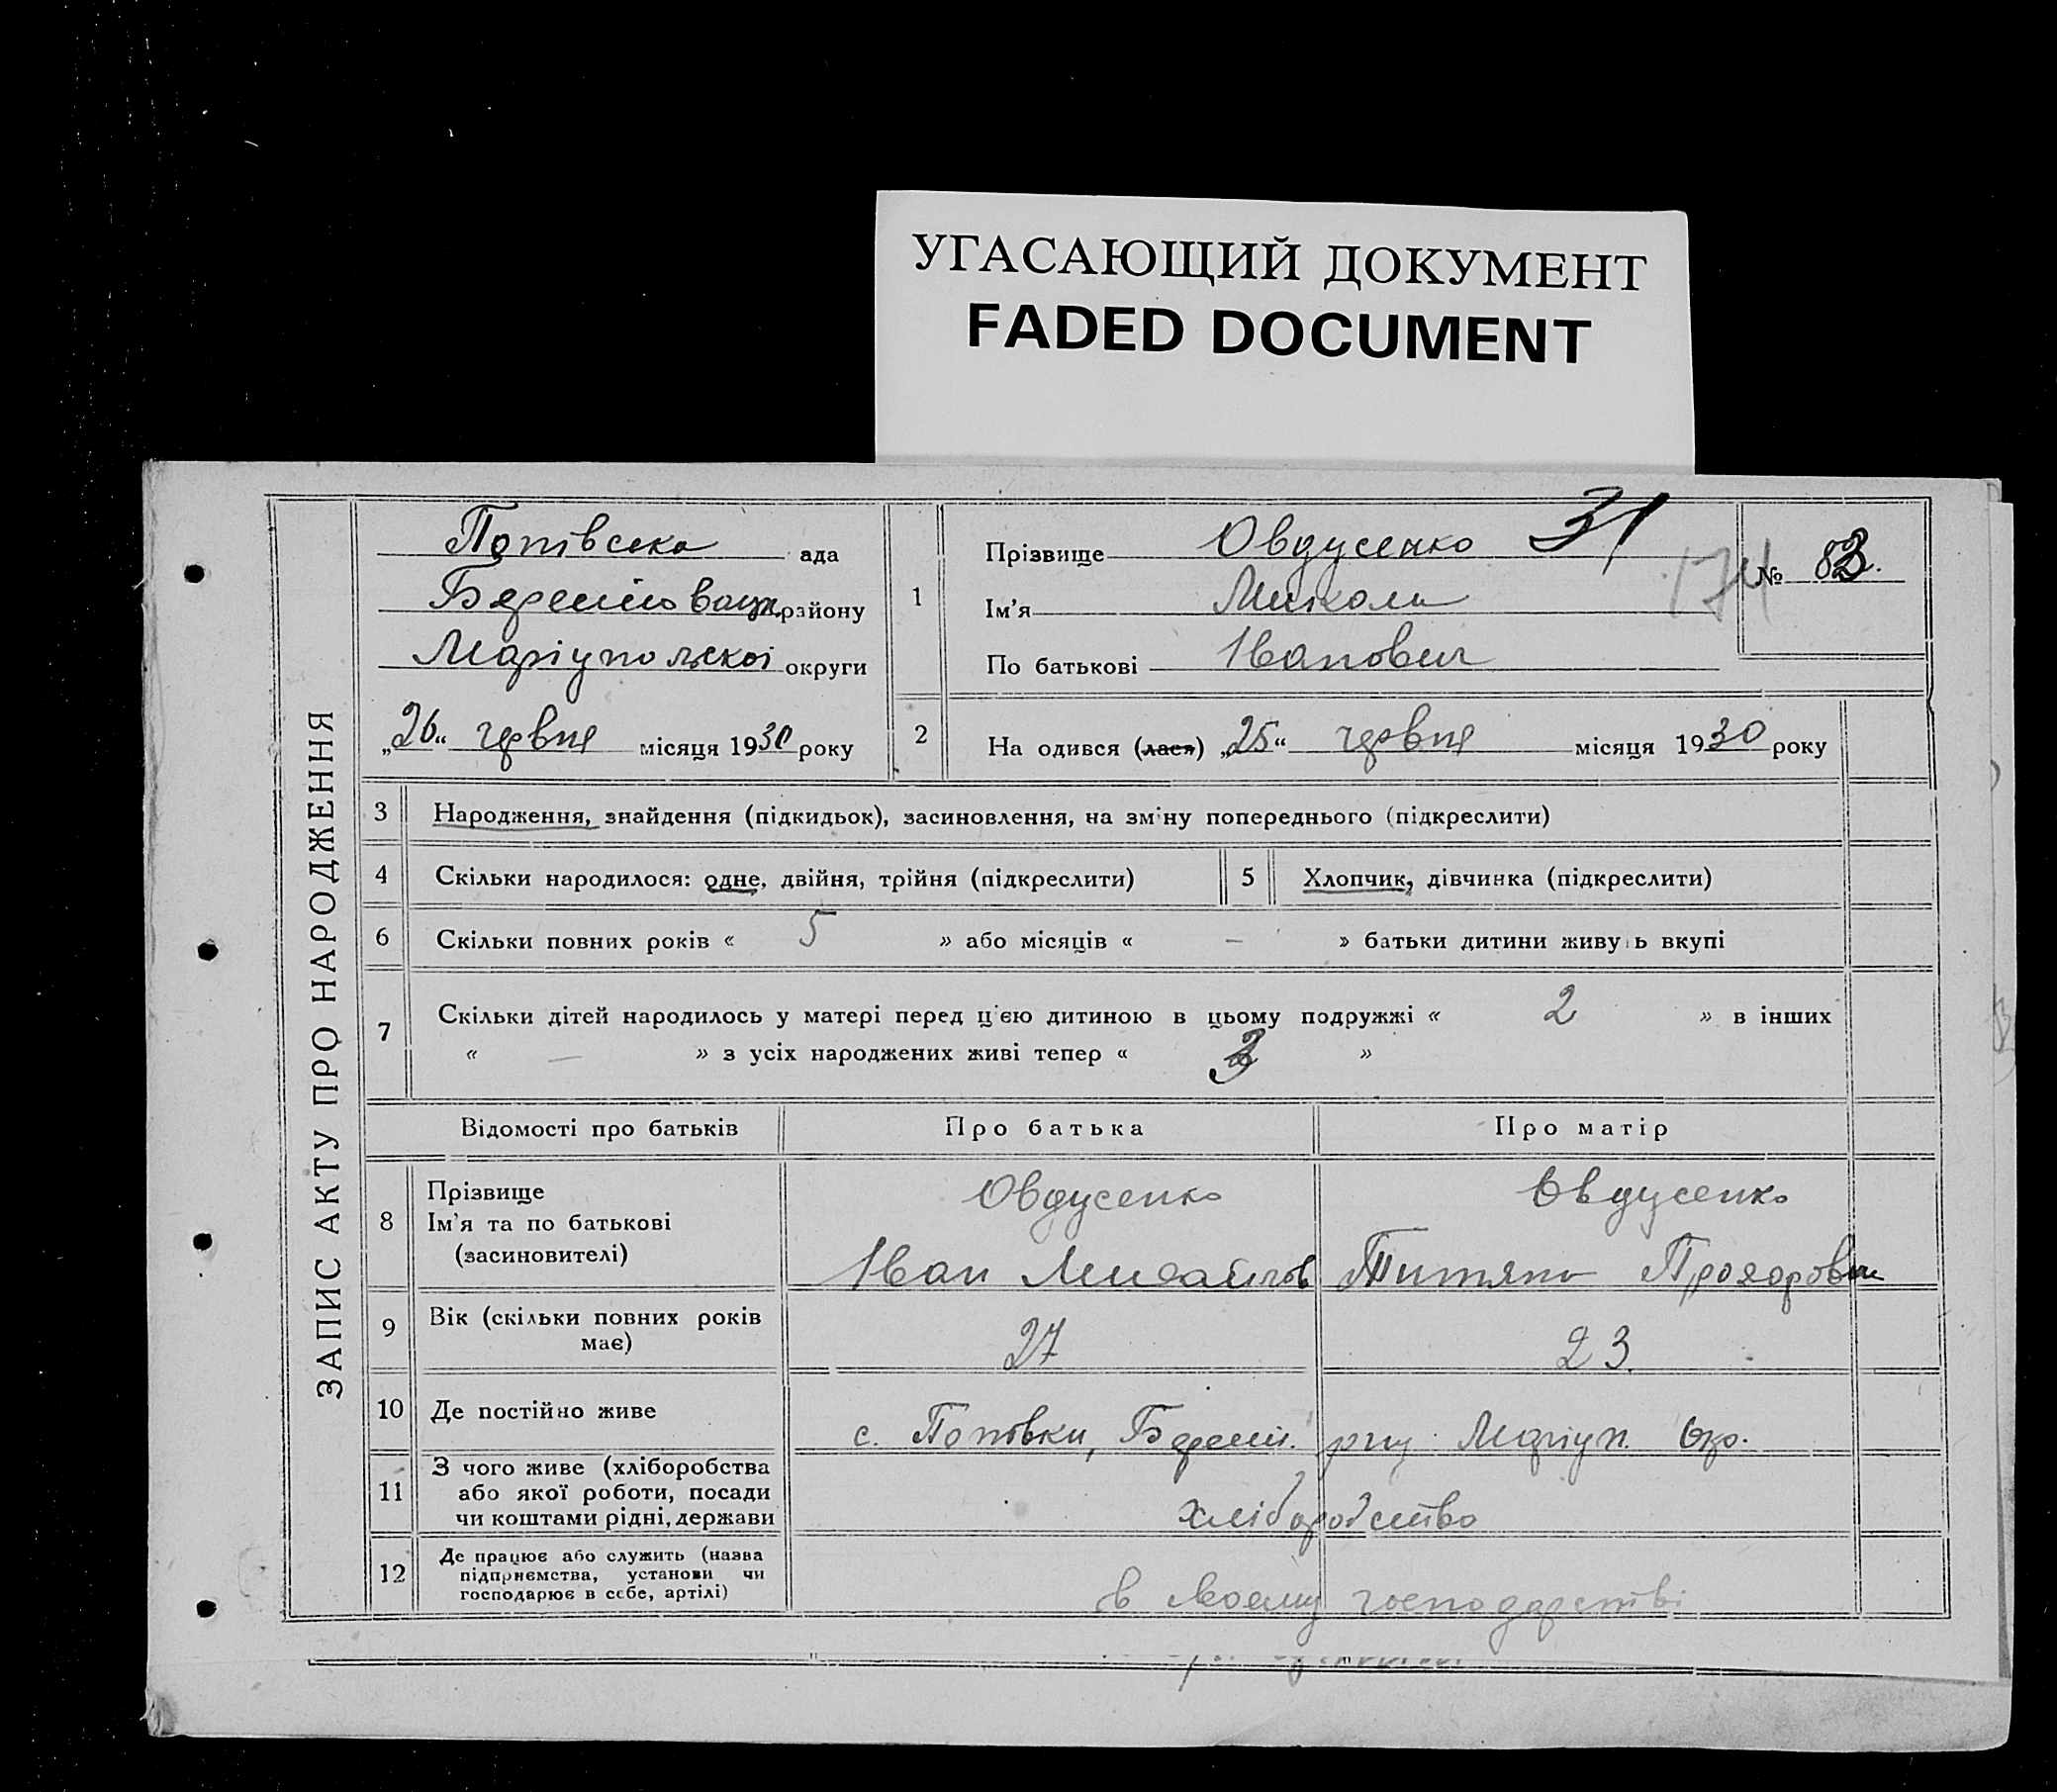 УГАСАЮЩИЙ ДОКУМЕНТ
FADED DOCUMENT
ЗАПИС АКТУ ПРО НАРОДЖЕННЯ
Попівська ада
району
Маріупольскої округи
„26“ червня місяця 1930 року
1
Прізвище Овдусенко 31
Ім’я Микола
По батькові Іванович
174
№ 83.
2 На одився (лася) „25“ червня місяця 1930 року
3 Народження, знайдення (підкидьок), засиновлення, на зміну попереднього (підкреслити)
4 Скільки народилося: одне, двійня, трійня (підкреслити)
5 Хлопчик, дівчинка (підкреслити)
6 Скільки повних років « 5 » або місяців « — » батьки дитини живу ь вкупі
7 Скільки дітей народилось у матері перед цією дитиною в цьому подружжі « 2 » в інших
« — » з усіх народжених живі тепер « 3 »
Відомості про батьків Про батька Про матір
8 Прізвище
Ім’я та по батькові
(засиновителі)
Овдусенко
Іван Михайлов
Овдусенко
Титяна Прохоровн
9 Вік (скільки повних років
має)
27 23
10 Де постійно живе
с. Попівки, рну Маріуп. Окр.
11 З чого живе (хліборобства
або якої роботи, посади
чи коштами рідні, держави
хліборобство
12 Де працює або служить (назва
підприємства, установи чи
господарює в себе, артілі)
в своєму господарстві